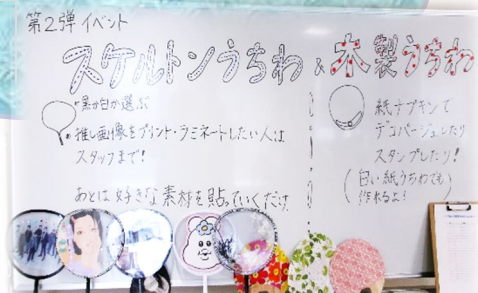 第2弾イベント
スケルトンうちわ & 木製うちわ
黒か白か選ぶ
推し画像をプリント・ラミネートしたい人は
スタッフまで!
あとは好きな素材を貼っていくだけ
紙ナプキンで
デコパージュしたり
スタンプしたり!
(白い紙うちわでも
作れるよ!)